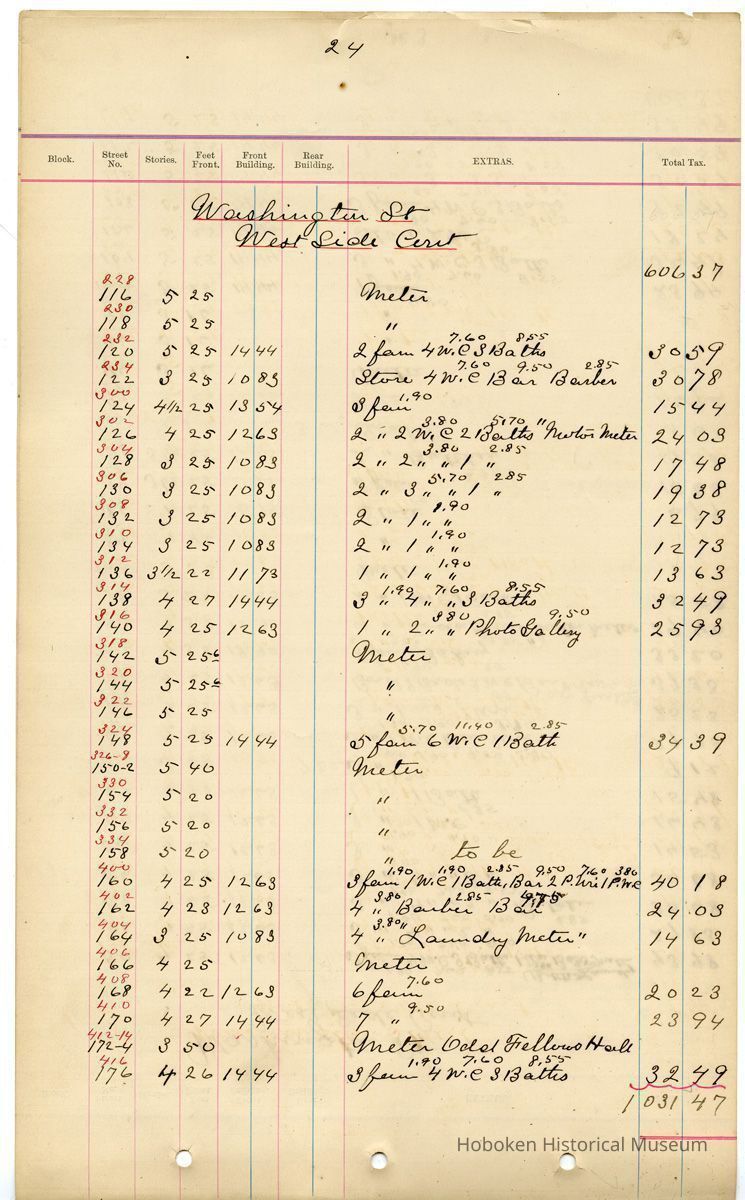 24
Block. Street No. Stories. Feet Front. Front Building. Rear Building. EXTRAS. Total Tax.
Washington St
West Side Cont
606 37
228
116 5 25 Meter
230
118 5 25 "
232 7.60 8.55
120 5 25 14 44 2 fam 4 W.C 3 Baths 30 59
234 7.60 9.50 2.85
122 3 25 10 83 Store 4 W.C Bar Barber 30 78
300 1.90
124 4 1/2 25 13 54 3 fam 15 44
302 3.80 5.70 "
126 4 25 12 63 2 " 2 W.C 2 Baths Motor Meter 24 03
304 3.80 2.85
128 3 25 10 83 2 " 2 " " 1 " 17 48
306 5.70 2.85
130 3 25 10 83 2 " 3 " " 1 " 19 38
308 1.90
132 3 25 10 83 2 " 1 " " 12 73
310 1.90
134 3 25 10 83 2 " 1 " " 12 73
312 1.90
136 3 1/2 22 11 73 1 " 1 " " 13 63
314 1.90 7.60 8.55
138 4 27 14 44 3 " 4 " " 3 Baths 32 49
316 3.80 9.50
140 4 25 12 63 1 " 2 " " Photo Gallery 25 93
318
142 5 25 6 Meter
320
144 5 25 6 "
322
146 5 25 "
324 5.70 11.40 2.85
148 5 25 14 44 5 fam 6 W.C 1 Bath 34 39
326-8
150-2 5 40 Meter
330
154 5 20 "
332
156 5 20 "
334
158 5 20 " to be
400 1.90 1.90 2.85 9.50 7.60 3.80
160 4 25 12 63 3 fam 1 W.C 1 Bath, Bar 2 P. Wcs 1 P.W.C 40 18
402 3.80 2.85 4.75
162 4 23 12 63 4 " Barber Bar 24 03
404 3.80 "
164 3 25 10 83 4 " Laundry Meter " 14 63
406
166 4 25 Meter
408 7.60
168 4 22 12 63 6 fam 20 23
410 9.50
170 4 27 14 44 7 " 23 94
412-14
172-4 3 50 Meter Odd Fellows Hall
416 1.90 7.60 8.55
176 4 26 14 44 3 fam 4 W.C 3 Baths 32 49
1 031 47
Hoboken Historical Museum